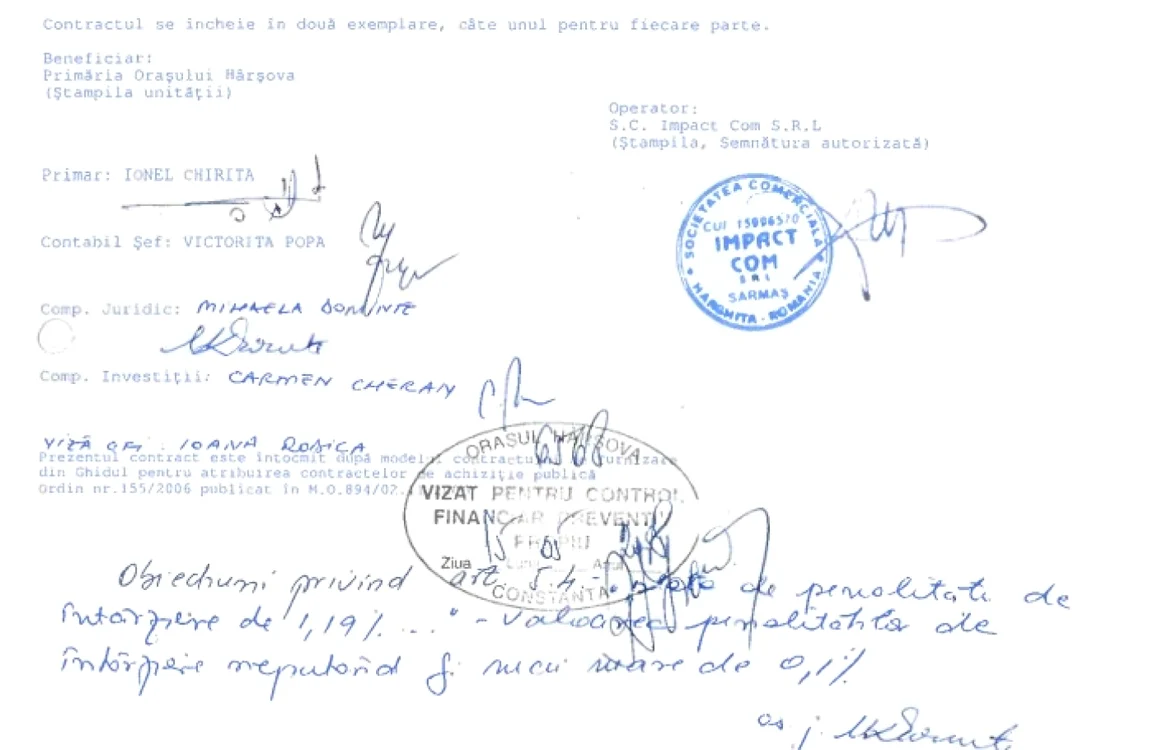 Contractul se încheie în două exemplare, câte unul pentru fiecare parte.
Beneficiar:
Primăria Oraşului Hârşova
(Ştampila unităţii)
Operator:
S.C. Impact Com S.R.L
(Ştampila, Semnătura autorizată)
Primar: IONEL CHIRITA
SOCIETATEA COMERCIALĂ
CUI 15996570
IMPACT
COM
SRL
SARMAŞ
HARGHITA - ROMANIA
Contabil Şef: VICTORITA POPA
Comp. Juridic: MIHAELA DOMINTE
Comp. Investiţii: CARMEN CHERAN
VIZĂ CFP: IOANA RODICA
Prezentul contract este întocmit după modelul contractului de furnizare
din Ghidul pentru atribuirea contractelor de achiziţie publică
Ordin nr.155/2006 publicat în M.O.894/02.
ORASUL HARSOVA
VIZAT PENTRU CONTROL
FINANCIAR PREVENTIV
PROPRIU
Ziua Luna Anul
CONSTANTA
Obiecţiuni privind art. 5.4. - de penalităti de
întârziere de 1,19% ..." - valoarea penalitătilor de
întârziere neputând fi mai mare de 0,1%